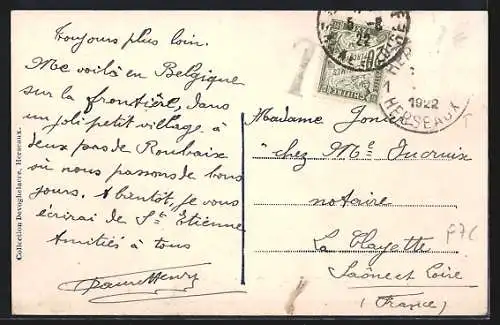 Toujours plus loin.
Me voilà en Belgique
sur la frontière, dans
un joli petit village à
deux pas de Roubaix
où nous passons de bons
jours. A bientôt, je vous
écrirai de St Etienne
Amitiés à tous
Henry
Collection Devoghelaere, Herseaux.
5 -8
22
1
1922
HERSEAUX
T
Madame
chez Me Ducruix
notaire
La Clayette
Saône et Loire
(France)